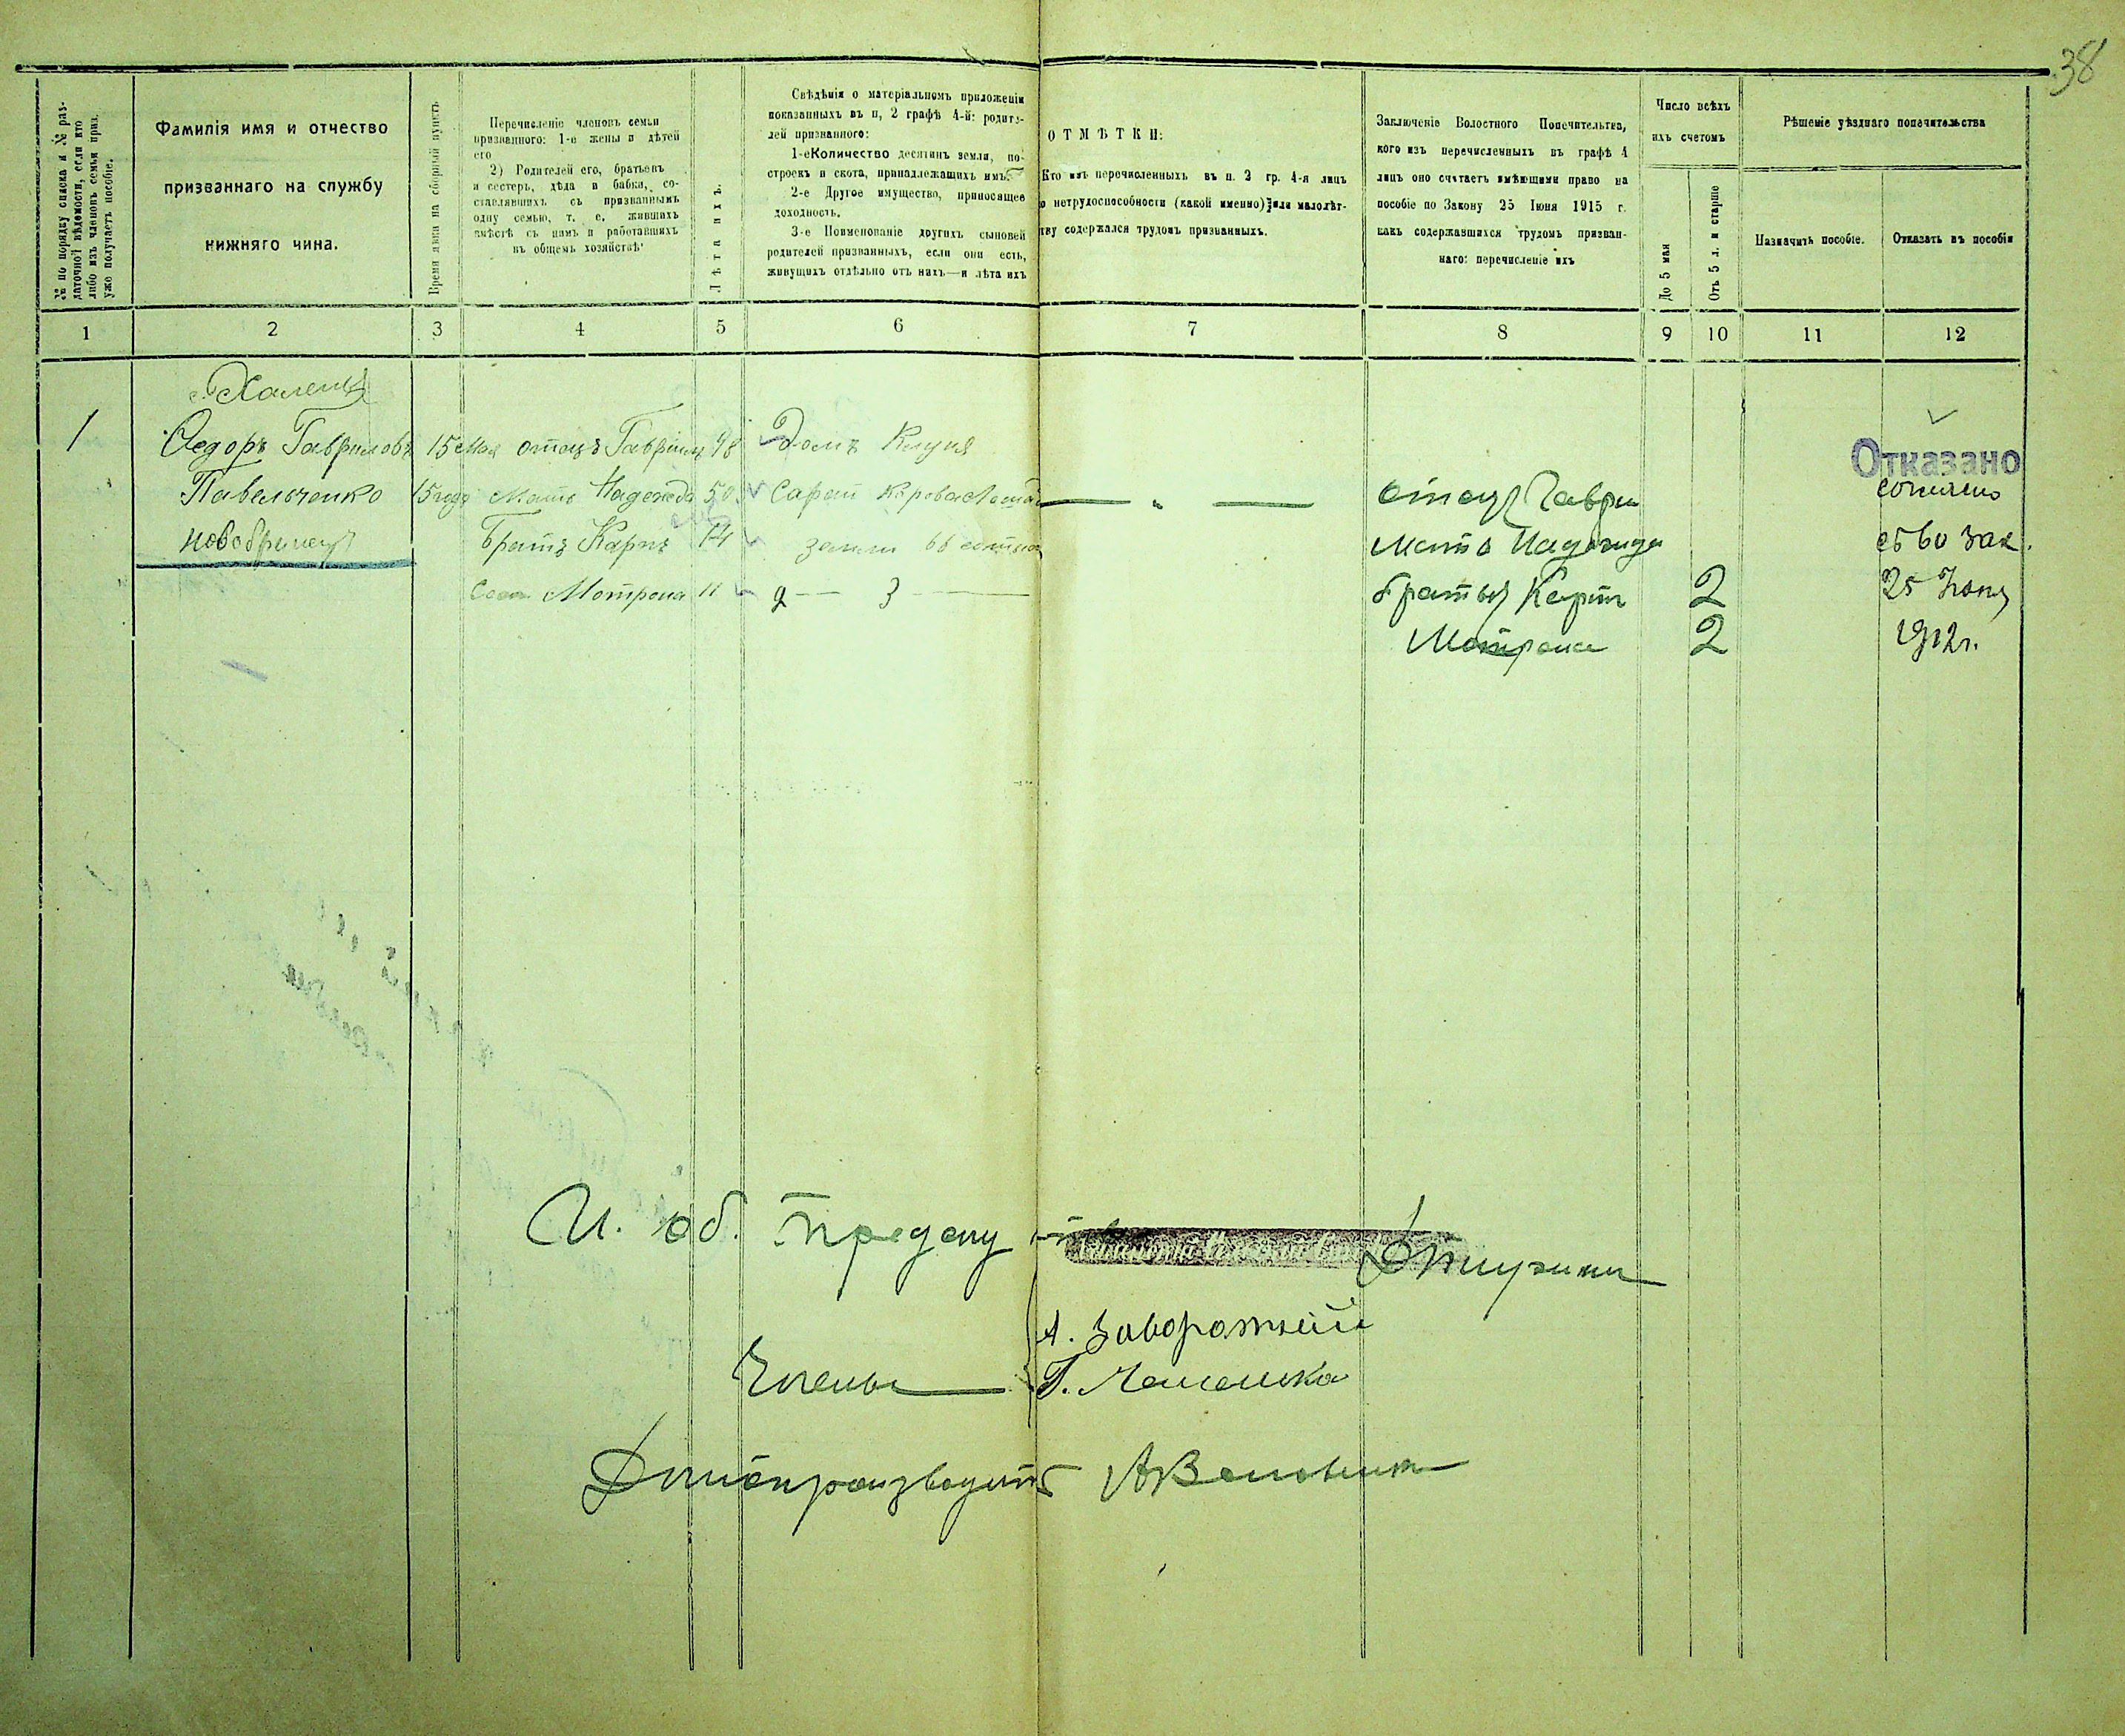 38
№ по порядку списка и № раз-
даточной вѣдомости, если кто
либо изъ членовъ семьи приз.
уже получаетъ пособіе.
Фамилія имя и отчество
призваннаго на службу
нижняго чина.
Время явки на сборный пунктъ
Перечисленіе членовъ семьи
призваннаго: 1-е жены и дѣтей
его
2) Родителей его, братьевъ
и сестеръ, дѣда и бабки, со-
ставлявшихъ съ призваннымъ
одну семью, т. е. жившихъ
вмѣстѣ съ нимъ и работавшихъ
въ общемъ хозяйствѣ
Лѣта ихъ.
Свѣдѣнія о матеріальномъ приложеніи
показанныхъ въ п, 2 графѣ 4-й: родите-
лей призваннаго:
1-е Количество десятинъ земли, по-
строекъ и скота, принадлежащихъ имъ.
2-е Другое имущество, приносящее
доходность.
3-е Поименованіе другихъ сыновей
родителей призванныхъ, если они есть,
живущихъ отдѣльно отъ нихъ—и лѣта ихъ
ОТМѢТКИ:
Кто изъ перечисленныхъ въ п. 2 гр. 4-я лицъ
о нетрудоспособности (какой именно) или малолѣт-
тву содержался трудомъ призванныхъ.
Заключеніе Волостного Попечительтва,
кого изъ перечисленныхъ въ графѣ 4
лицъ оно считаетъ имѣющими право на
пособіе по Закону 25 Іюня 1915 г.
какъ содержавшихся трудомъ призван-
наго: перечисленіе ихъ
Число всѣхъ
ихъ счетомъ
До 5 мая
Отъ 5 л. и старше
Рѣшеніе уѣзднаго попечительства
Назначить пособіе.
Отказать въ пособіи
1 2 3 4 5 6 7 8 9 10 11 12
1 Ѳедоръ Гавриловъ 15 мая отецъ Гавріилъ 48 Домъ Клуня
Отказано
Павельченко 15 года Мать Надежда 50 Сарай Корова
отецъ Гаври
новобранецъ Братъ Карпъ 14 земли
Мать Надежида
зак.
Мотрона 11 2 — 3 —
братья Карпъ 2 25 Іюня
Мотрона 2 1912 г.
И. об. Предсѣд
А. Заворотній
Члены Г.
Дѣлопроизводит